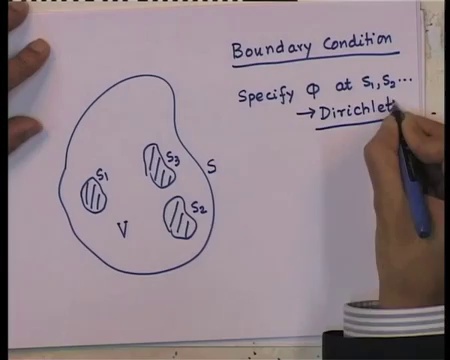 Boundary Condition
Specify Φ at S1, S2...
→ Dirichlet
S1
S3
S
S2
V